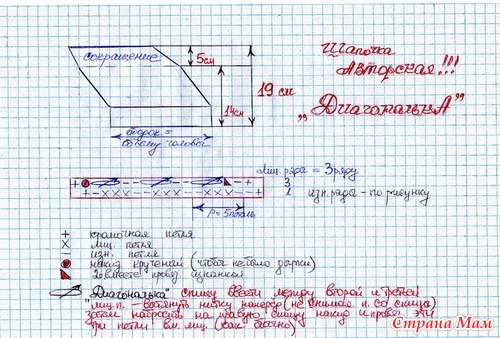 Шапочка
Авторская!!!
„Диагональка"
сокращение
5см
19 см
14см
ободок =
объему головы
Лиц. ряда = 3 ряду
3
2
изн. ряда - по рисунку
P = 5 петель
+ кромочная петля
× лиц. петля
− изн. петля
накид крученый (чтобы не было дырки)
2 вместе провяз. изнаночн
"Диагональка" спицу ввести между второй и третьей
лиц п. - вытянуть нитку наверх (не снимая п. со спицы)
затем набросить на левую спицу накид и провяз эти
три петли вм. лиц. (как бабочка)
Страна Мам